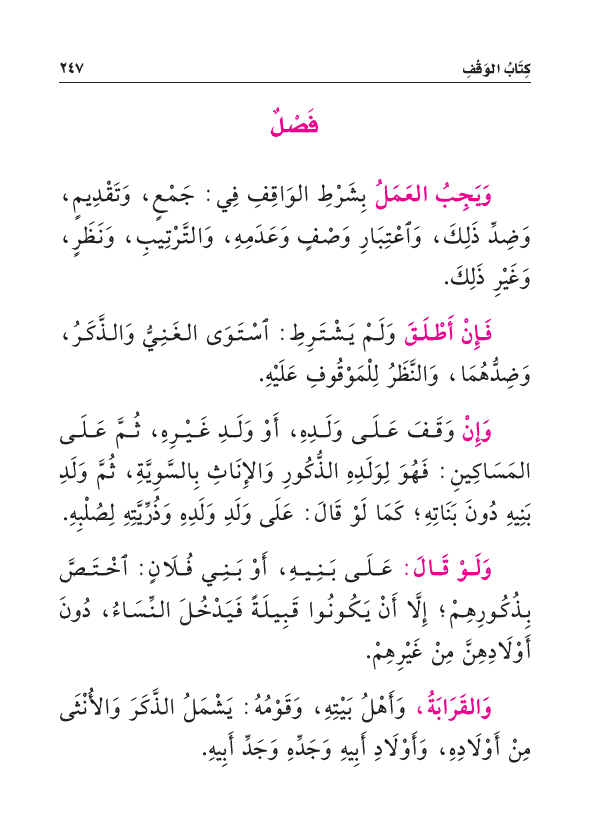 كِتَابُ الوَقْفِ ٢٤٧
فَصْلٌ
وَيَجِبُ العَمَلُ بِشَرْطِ الوَاقِفِ فِي: جَمْعٍ، وَتَقْدِيمٍ،
وَضِدِّ ذَلِكَ، وَٱعْتِبَارِ وَصْفٍ وَعَدَمِهِ، وَالتَّرْتِيبِ، وَنَظَرٍ،
وَغَيْرِ ذَلِكَ.
فَإِنْ أَطْلَقَ وَلَمْ يَشْتَرِطِ: ٱسْتَوَى الغَنِيُّ وَالذَّكَرُ،
وَضِدُّهُمَا، وَالنَّظَرُ لِلْمَوْقُوفِ عَلَيْهِ.
وَإِنْ وَقَفَ عَلَى وَلَدِهِ، أَوْ وَلَدِ غَيْرِهِ، ثُمَّ عَلَى
المَسَاكِينِ: فَهُوَ لِوَلَدِهِ الذُّكُورِ وَالإِنَاثِ بِالسَّوِيَّةِ، ثُمَّ وَلَدِ
بَنِيهِ دُونَ بَنَاتِهِ؛ كَمَا لَوْ قَالَ: عَلَى وَلَدِ وَلَدِهِ وَذُرِّيَّتِهِ لِصُلْبِهِ.
وَلَوْ قَالَ: عَلَى بَنِيهِ، أَوْ بَنِي فُلَانٍ: ٱخْتَصَّ
بِذُكُورِهِمْ؛ إِلَّا أَنْ يَكُونُوا قَبِيلَةً فَيَدْخُلَ النِّسَاءُ، دُونَ
أَوْلَادِهِنَّ مِنْ غَيْرِهِمْ.
وَالقَرَابَةُ، وَأَهْلُ بَيْتِهِ، وَقَوْمُهُ: يَشْمَلُ الذَّكَرَ وَالأُنْثَى
مِنْ أَوْلَادِهِ، وَأَوْلَادِ أَبِيهِ وَجَدِّهِ وَجَدِّ أَبِيهِ.